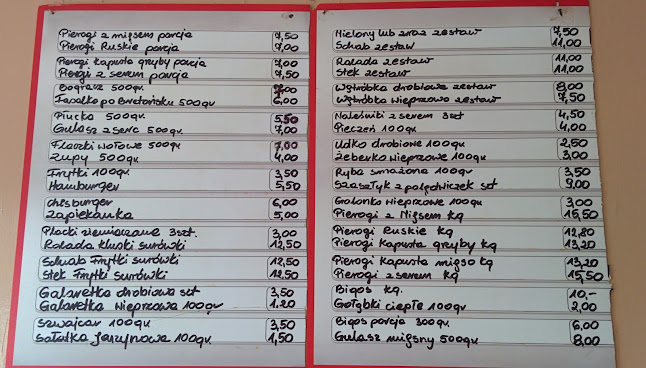 Pierogi z mięsem porcja 7,50
Pierogi Ruskie porcja 7,00
Pierogi kapusta grzyby porcja 7,00
Pierogi z serem porcja 7,50
Bogracz 500gr. 7,00
Fasolka po Bretońsku 500gr 6,00
Płucka 500gr. 5,50
Gulasz z serc 500gr. 7,00
Flaczki wołowe 500gr. 7,00
Zupy 500gr. 4,00
Frytki 100gr. 3,50
Hamburger 5,50
chisburger 6,00
Zapiekanka 5,00
Placki ziemniaczane 3szt. 3,00
Rolada kluski surówki 12,50
Schab frytki surówki 12,50
Stek frytki surówki 12,50
Galaretka drobiowa szt 3,50
Galaretka wieprzowa 100gr 1.20
Szwajcar 100gr. 3,50
Sałatka jarzynowa 100gr. 1,50
Mielony lub zraz zestaw 7,50
Schab zestaw 11,00
Rolada zestaw 11,00
Stek zestaw 11,00
Wątróbka drobiowa zestaw 8,00
Wątróbka wieprzowa zestaw 7,50
Naleśniki z serem 3szt 4,50
Pieczeń 100gr. 4,00
Udko drobiowe 100gr. 2,50
Żeberko wieprzowe 100gr. 3,00
Ryba smażona 100gr. 3,50
Szaszłyk z polędwiczek szt 9,00
Golonka wieprzowe 100gr. 3,00
Pierogi z Mięsem kg 15,50
Pierogi Ruskie kg 12,80
Pierogi kapusta grzyby kg 13,20
Pierogi kapusta mięso kg 13,20
Pierogi z serem kg 15,50
Bigos kg. 10,-
Gołąbki ciepłe 100gr 2,00
Bigos porcja 300gr. 6,00
Gulasz mięsny 500gr. 8,00